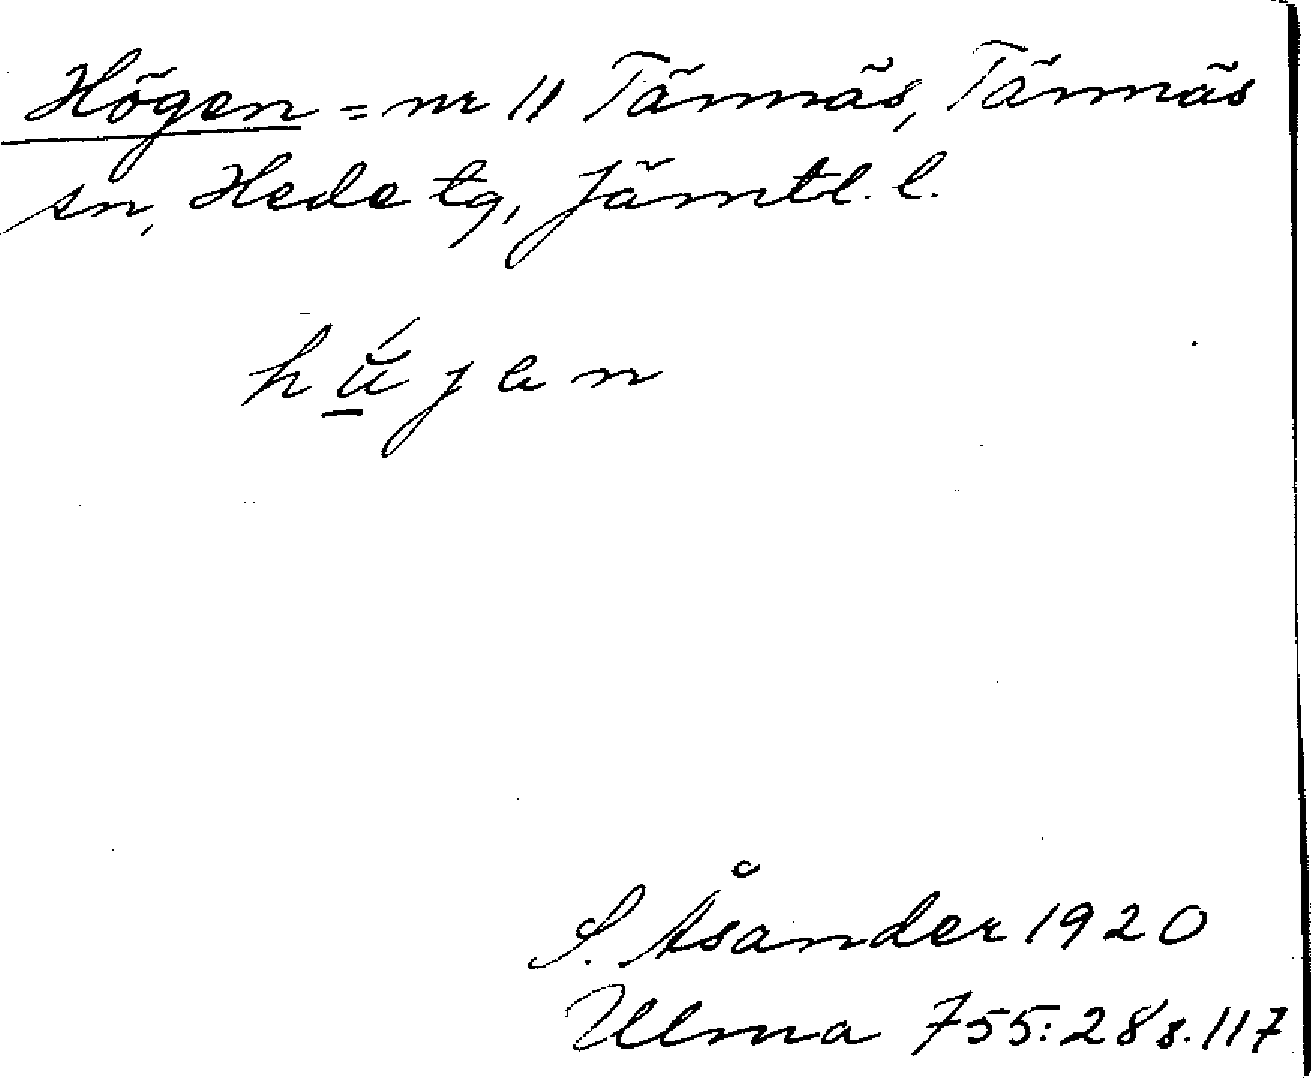 Högen = nr 11 Tännäs, Tännäs
sn, Hede tg, Jämtl. l.
S. Åsander 1920
Ulma 755:28 s. 117